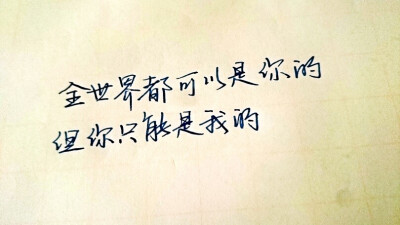 全世界都可以是你的
但你只能是我的